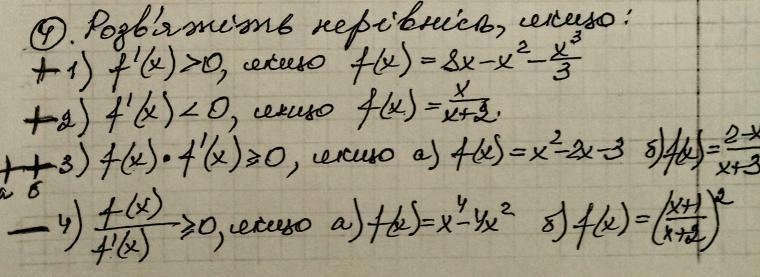 ④. Розв'яжіть нерівність, якщо:
+ 1) f'(x) > 0, якщо f(x) = 8x - x² - x³/3
+ 2) f'(x) < 0, якщо f(x) = x/(x+2).
+ + 3) f(x) · f'(x) ≥ 0, якщо а) f(x) = x² - 2x - 3 б) f(x) = (2-x)/(x+3)
а б
— 4) f(x)/f'(x) ≥ 0, якщо а) f(x) = x⁴ - 4x² б) f(x) = ((x+1)/(x+2))²